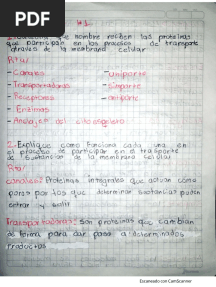 PDF
#1
que nombre reciben las proteinas
que participan en los procesos de transporte
através de la membrana celular
Rta/
- Canales - uniporte
- Transportadoras - simporte
- Receptores - antiporte
- Enzimas
- Anclajes del citoesqueleto
2. Explique como funciona cada una en
el proceso de participar en el transporte
de sustancias de la membrana celular
Rta/
canales: Proteinas integrales que actuan como
poros por los que determinan sustancias pueden
entrar y salir
Transportadoras: son proteinas que cambian
de forma para dar paso a determinados
productos
Escaneado con CamScanner